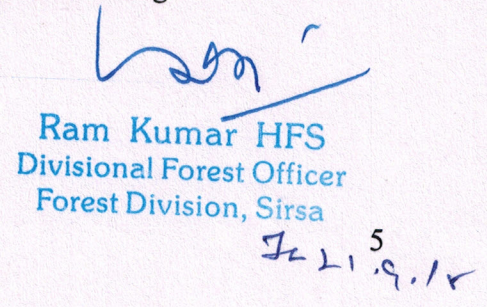 Ram Kumar HFS
Divisional Forest Officer
Forest Division, Sirsa
5